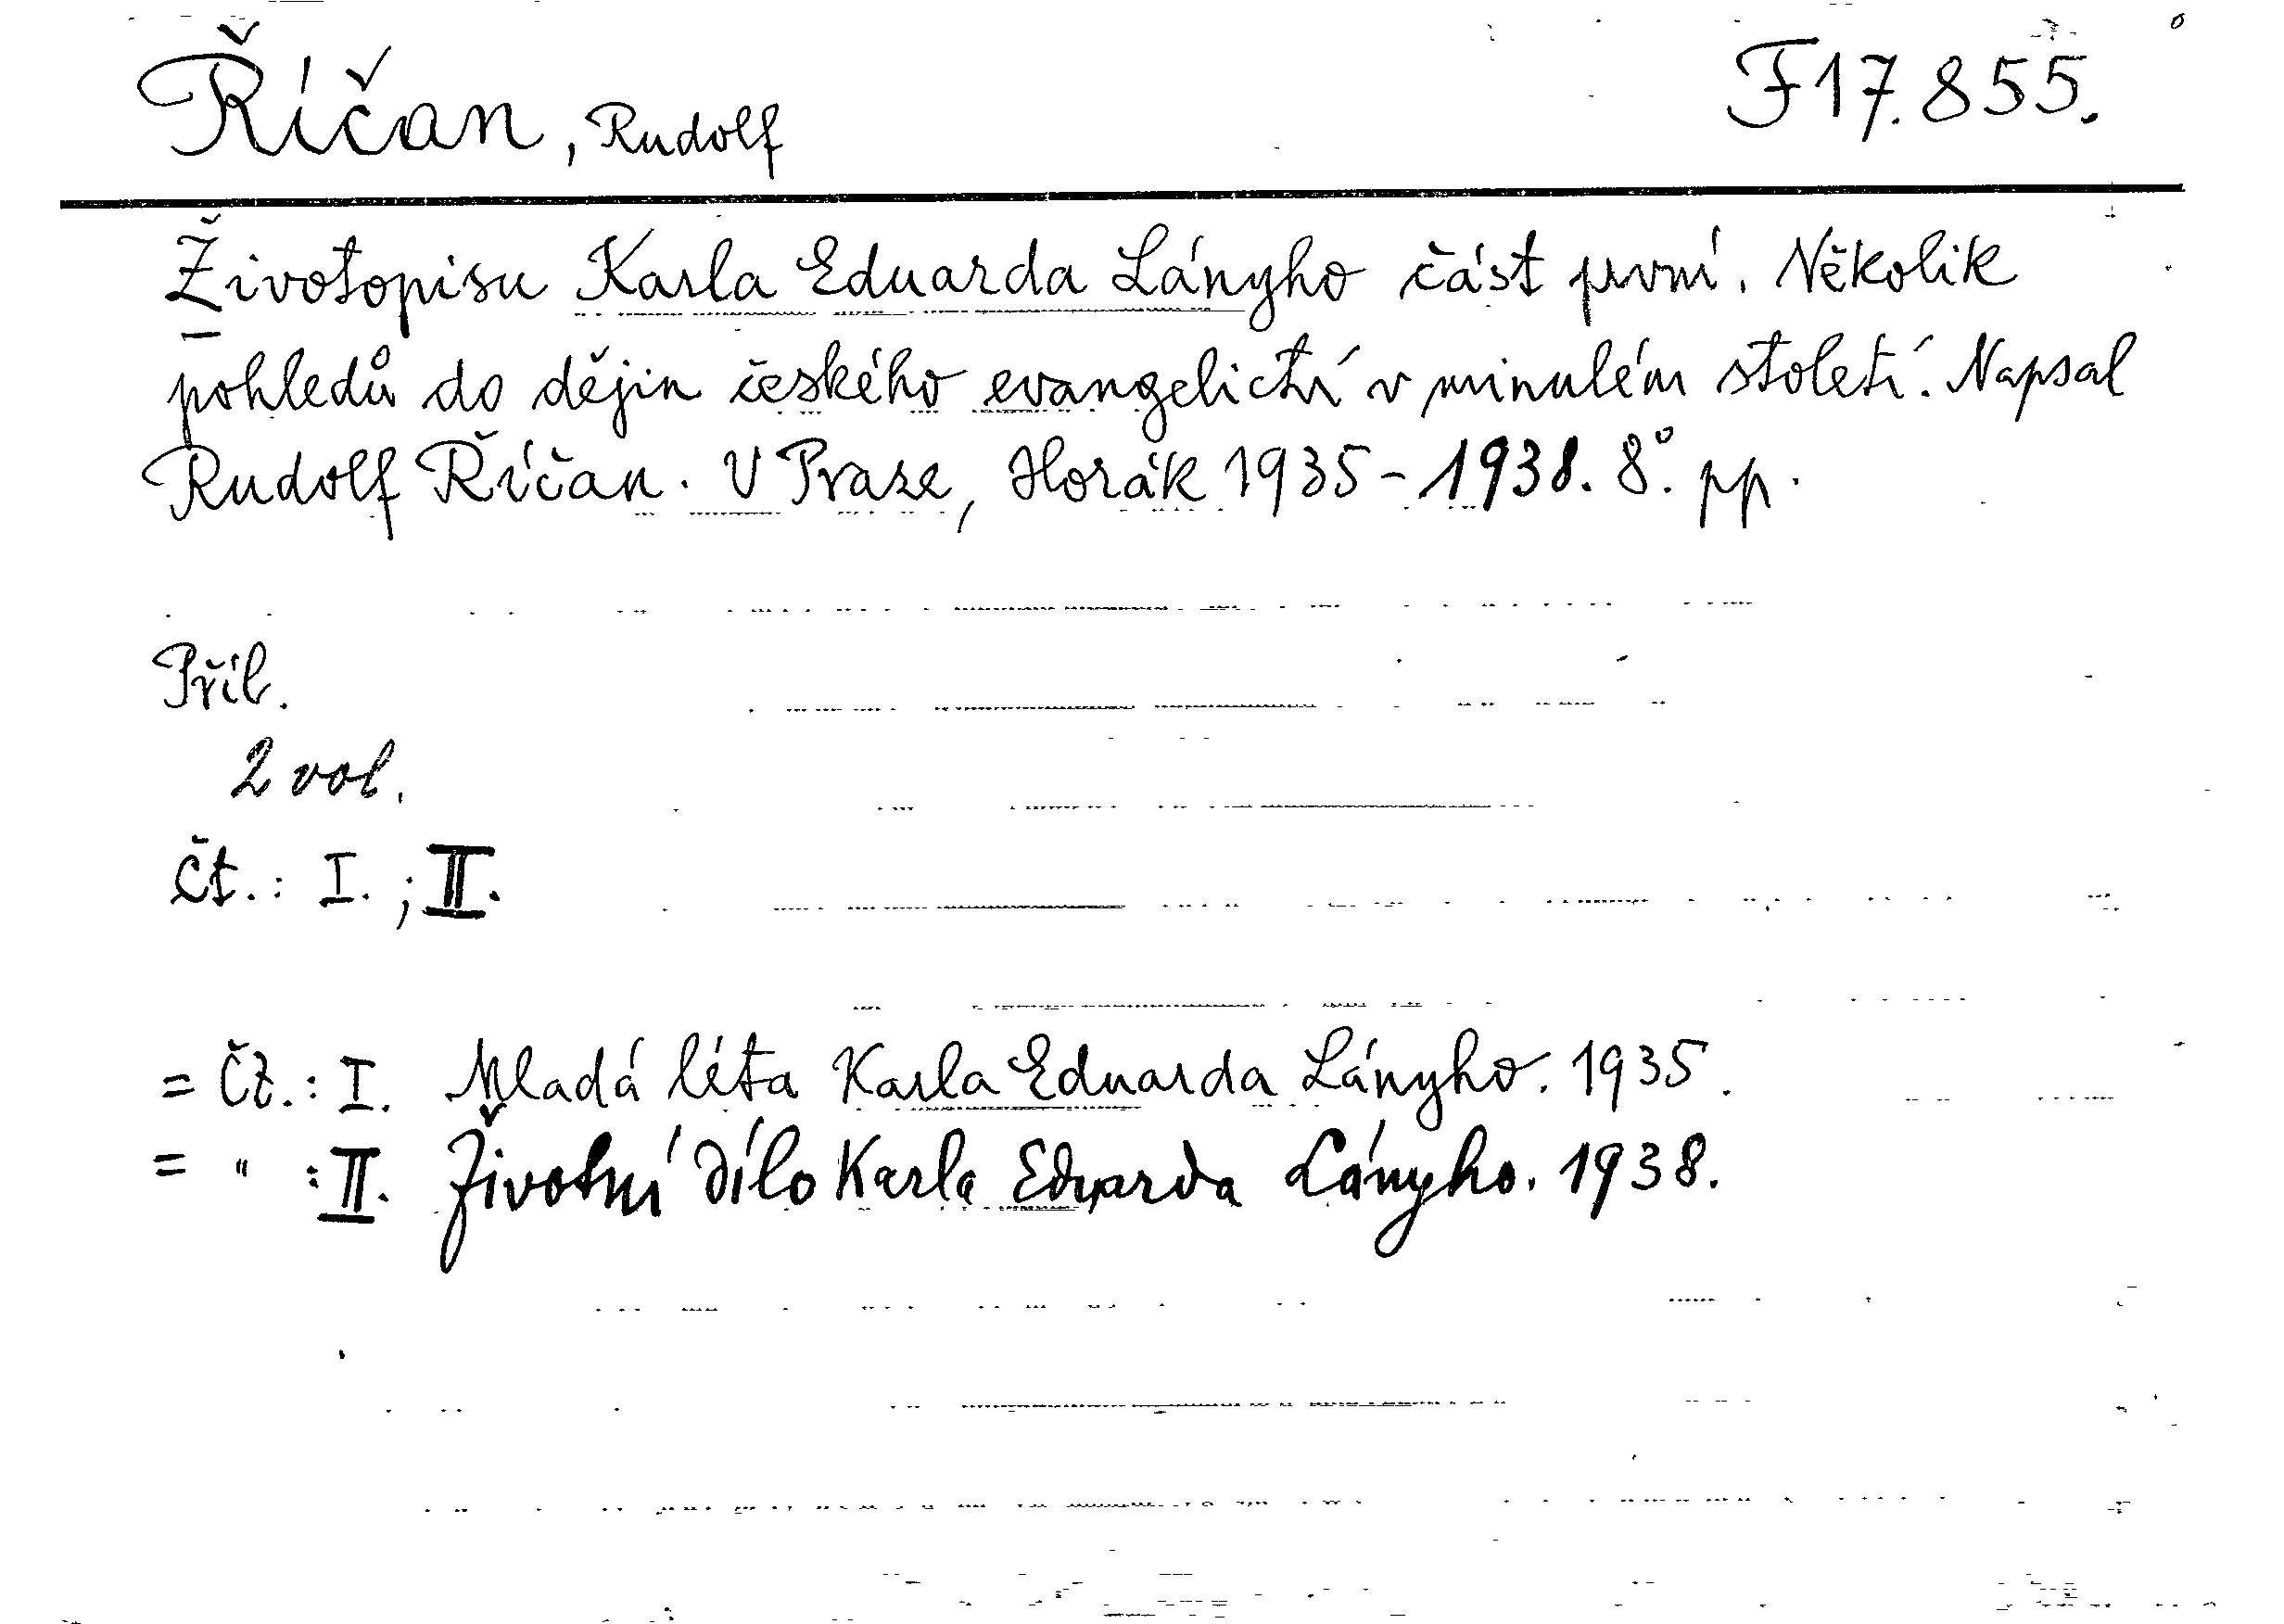 Říčan, Rudolf F 17.855.
Životopisu Karla Eduarda Lányho část první. Několik
pohledů do dějin českého evangelictví v minulém století. Napsal
Rudolf Říčan. V Praze, Horák 1935-1938. 8°. pp.
Příb.
2 vol.
Čt.: I.; II.
= Čt.: I. Mladá léta Karla Eduarda Lányho. 1935.
= " : II. Životní dílo Karla Eduarda Lányho. 1938.